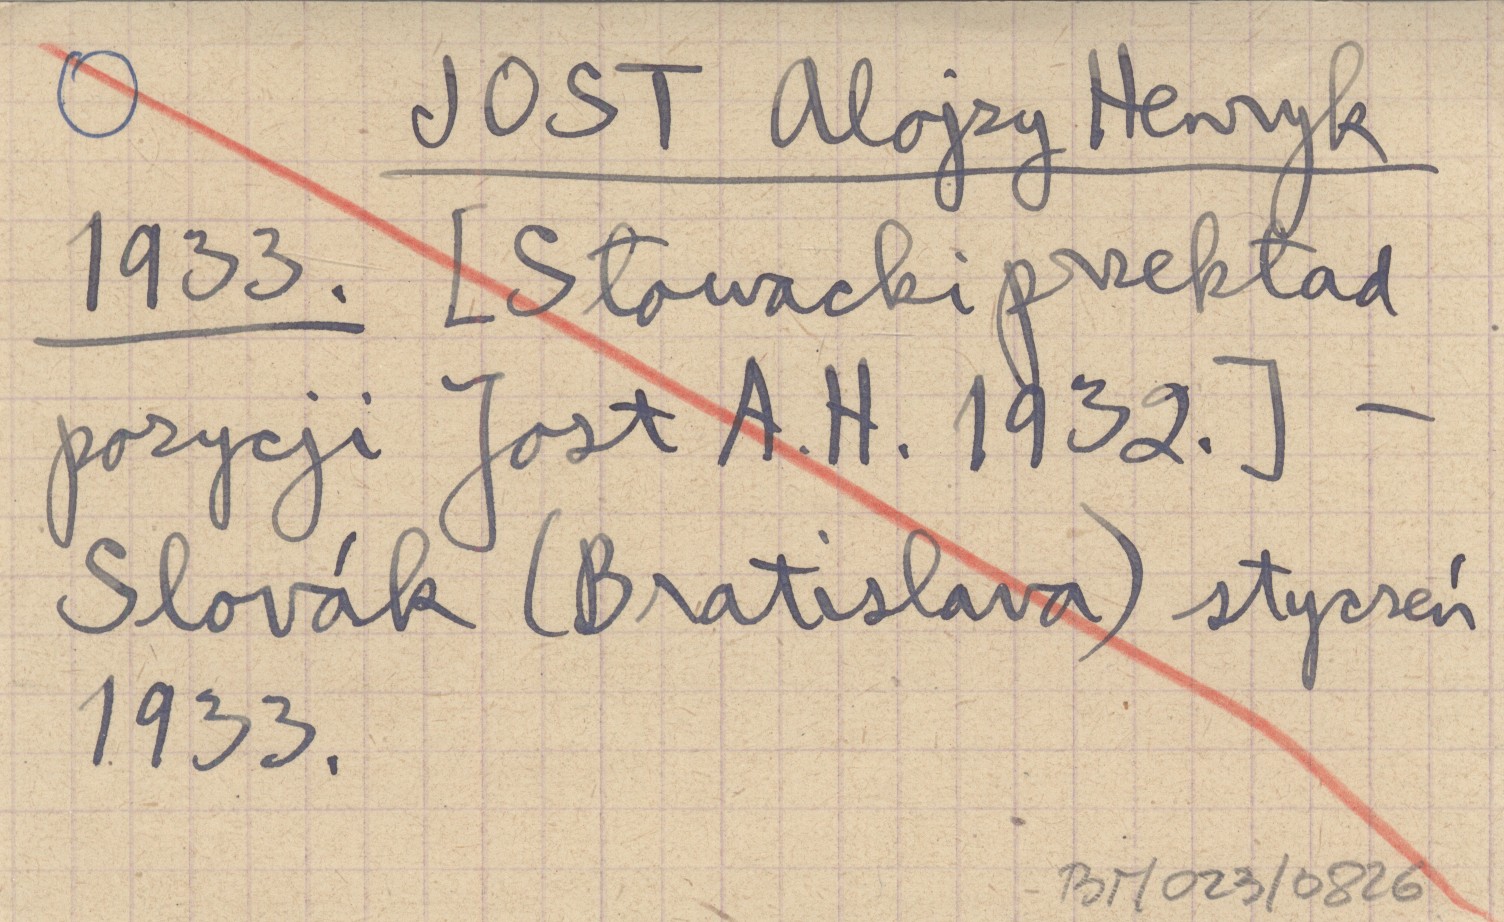 JOST Alojzy Henryk
1933. [Słowacki przekład
pozycji Jost A.H. 1932.] -
Slovák (Bratislava) styczeń
1933.
BM/023/0826